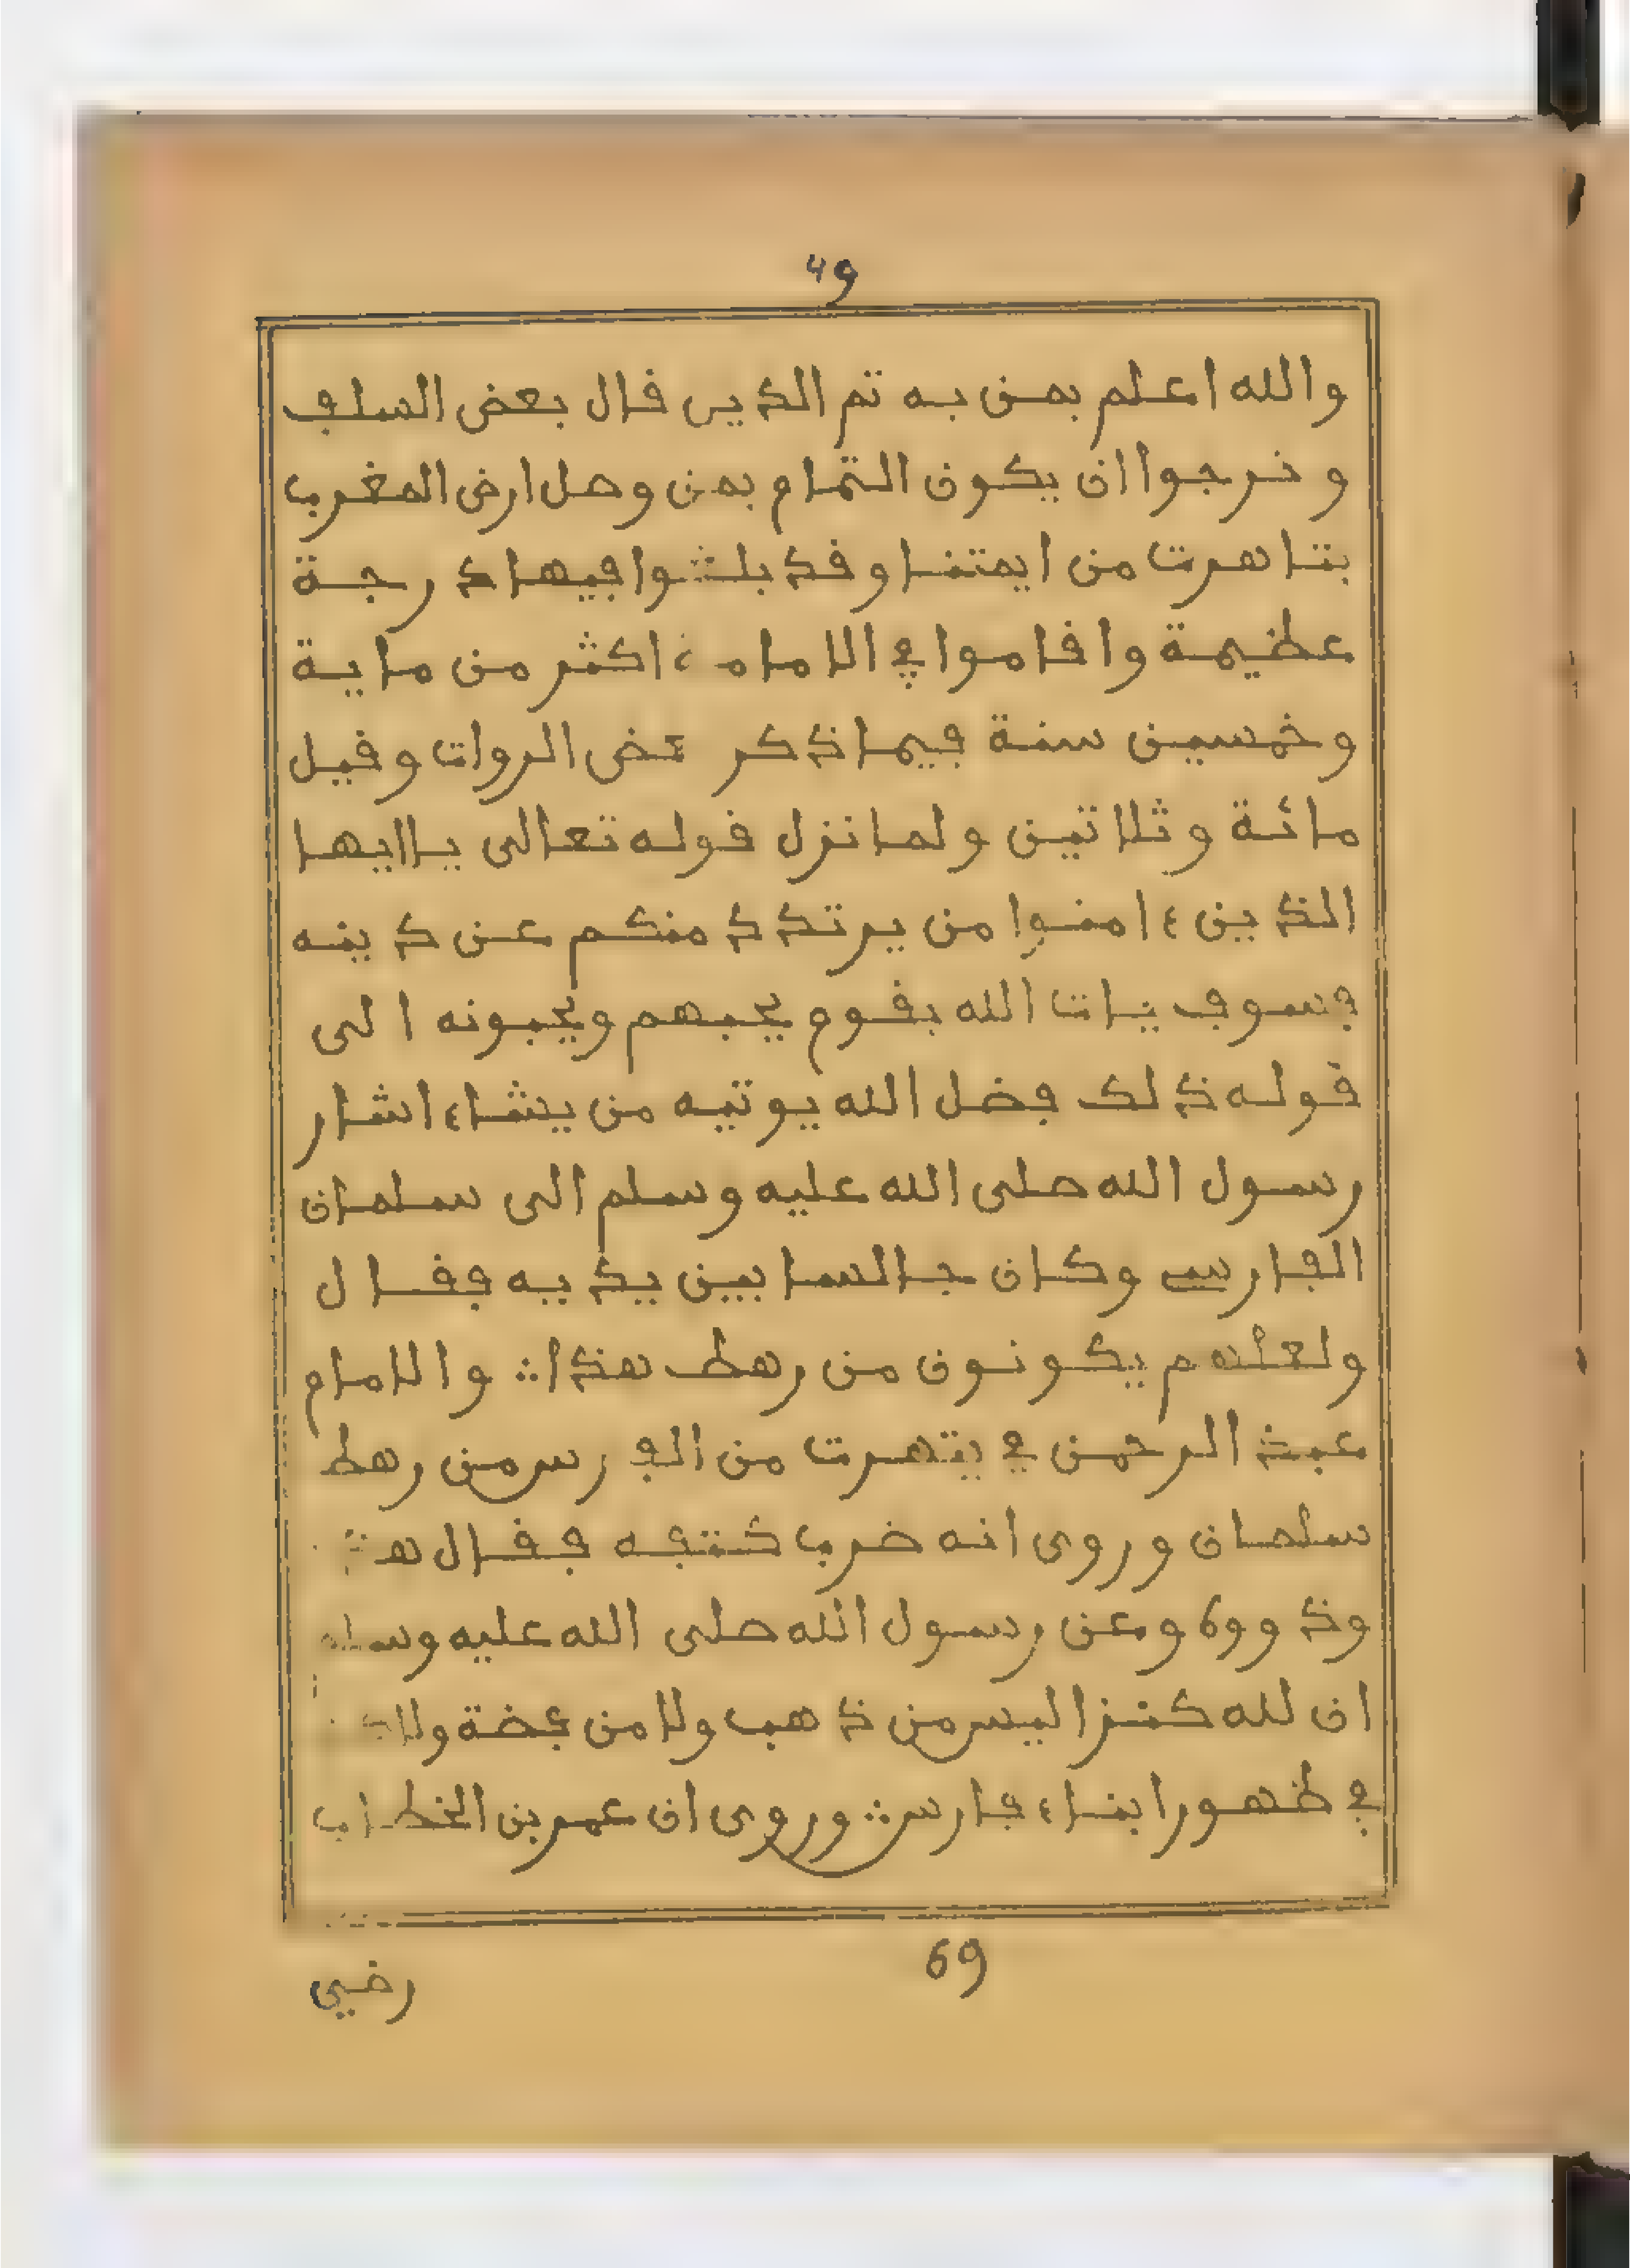 49
والله اعلم بمن به تم الدين قال بعض السلف
و نرجوا ان يكون التمام بمن وصل ارض المغرب
بتاهرت من ايمتنا وقد بلغوا فيها درجة
عظيمة واقاموا في الامامة اكثر من ماية
وخمسين سنة فيما ذكر بعض الروات وقيل
مائة وثلاثين ولما نزل قوله تعالى ياايها
الذين ءامنوا من يرتدد منكم عن دينه
فسوف يات الله بقوم يحبهم ويحبونه الى
قوله ذلك فضل الله يوتيه من يشاء اشار
رسول الله صلى الله عليه وسلم الى سلمان
الفارسي وكان جالسا بين يديه فقال
ولعلهم يكونون من رهط هذا والامام
عبد الرحمن في يتهرت من الفرس من رهط
سلمان وروى انه ضرب كتفه فقال هذا
وذووه وعن رسول الله صلى الله عليه وسلم
ان لله كنزا ليس من ذهب ولا من فضة ولاك
في ظهور ابناء فارس وروى ان عمر بن الخطاب
69
رضي